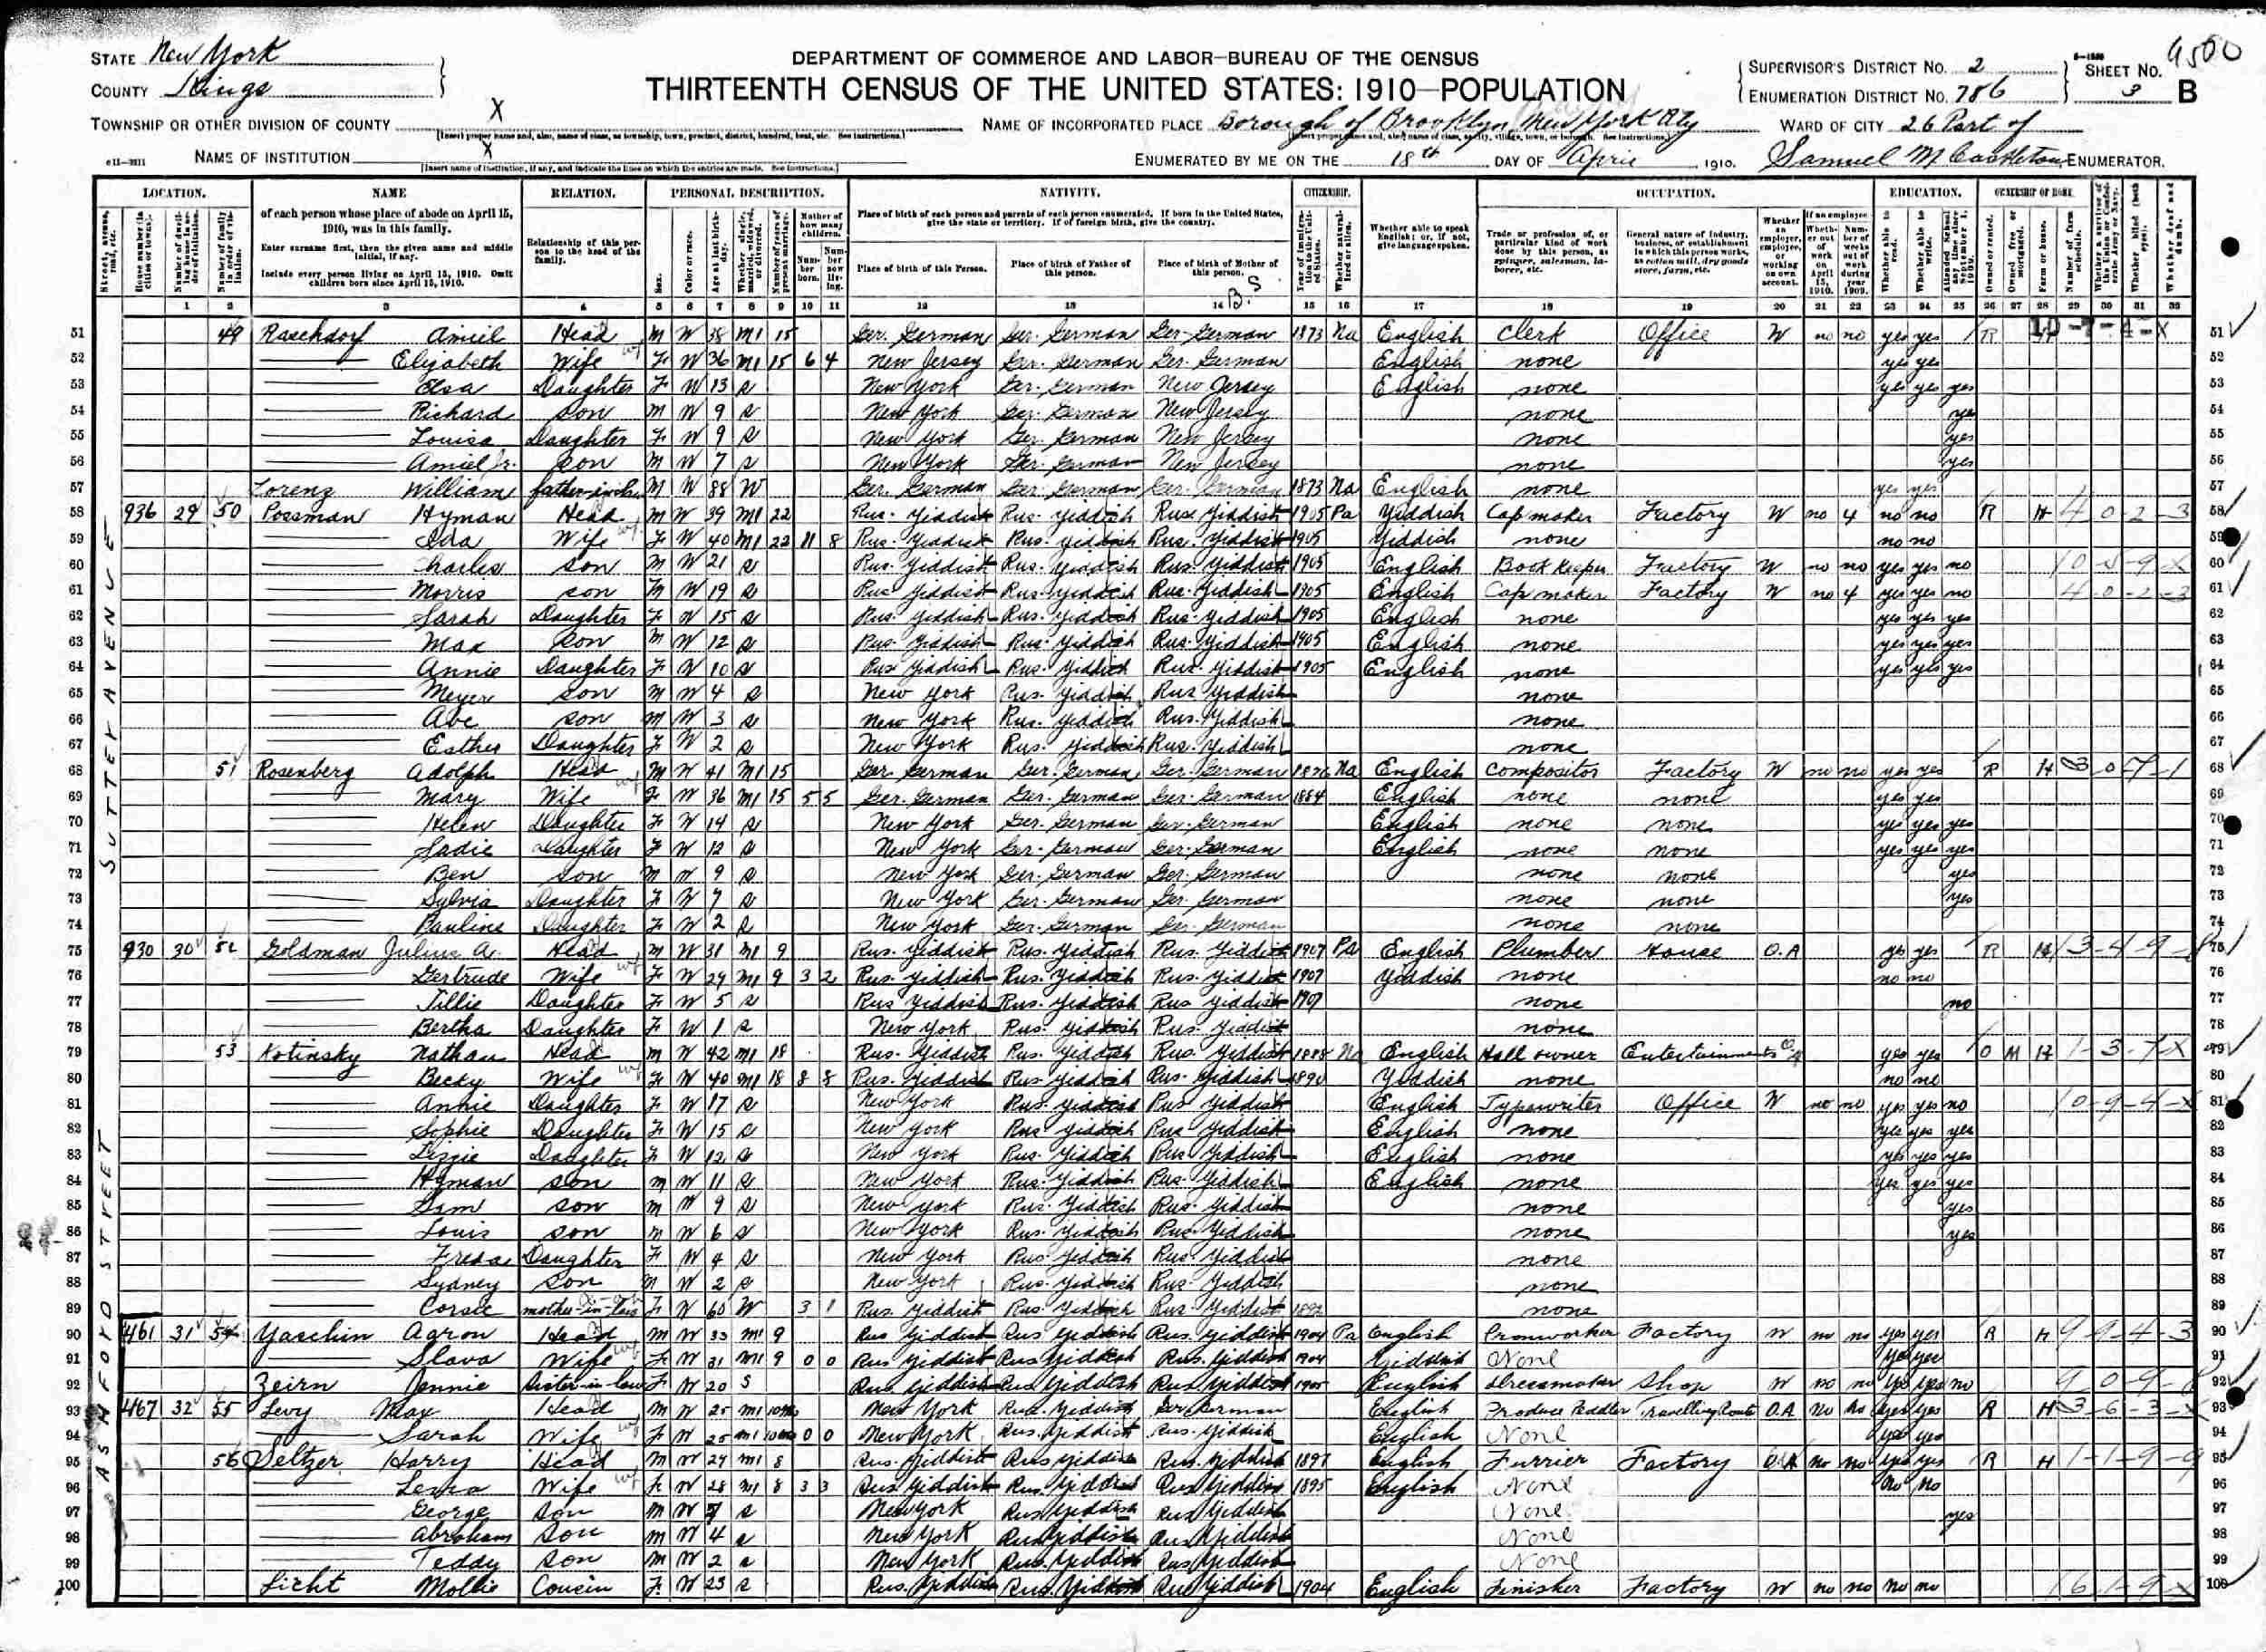 STATE New York
COUNTY Kings
DEPARTMENT OF COMMERCE AND LABOR—BUREAU OF THE CENSUS
THIRTEENTH CENSUS OF THE UNITED STATES: 1910—POPULATION
SUPERVISOR'S DISTRICT No. 2
ENUMERATION DISTRICT No. 786
SHEET No. 3 B
9500
TOWNSHIP OR OTHER DIVISION OF COUNTY X
NAME OF INCORPORATED PLACE Borough of Brooklyn New York City
WARD OF CITY 26 Part of
NAME OF INSTITUTION X
ENUMERATED BY ME ON THE 18th DAY OF April, 1910. Samuel M Castleton, ENUMERATOR.
LOCATION. NAME RELATION. PERSONAL DESCRIPTION. NATIVITY. CITIZENSHIP. OCCUPATION. EDUCATION. OWNERSHIP OF HOME.
of each person whose place of abode on April 15, 1910, was in this family.
Enter surname first, then the given name and middle initial, if any.
Include every person living on April 15, 1910. Omit children born since April 15, 1910.
Relationship of this person to the head of the family.
Place of birth of each person and parents of each person enumerated. If born in the United States, give the state or territory. If of foreign birth, give the country.
Place of birth of this Person. Place of birth of Father of this person. Place of birth of Mother of this person.
Whether able to speak English; or, if not, give language spoken.
SUTTER AVENUE
51 49 Raschdorf Amiel Head M W 38 M1 15 Ger. German Ger. German Ger German 1873 Na English Clerk Office W no no yes yes R
52 Elizabeth Wife F W 36 M1 15 6 4 New Jersey Ger. German Ger. German English none yes yes
53 Elsa Daughter F W 13 S New York Ger. German New Jersey English none yes yes yes
54 Richard Son M W 9 S New York Ger. German New Jersey none yes
55 Louisa Daughter F W 9 S New York Ger. German New Jersey none yes
56 Amiel Jr. Son M W 7 S New York Ger. German New Jersey none yes
57 Lorenz William father-in-law M W 88 W Ger. German Ger. German Ger. German 1873 Na English none yes yes
58 936 29 50 Possman Hyman Head M W 39 M1 22 Rus. Yiddish Rus. Yiddish Rus. Yiddish 1905 Pa Yiddish Cap maker Factory W no 4 no no R H 4-0-2-3
59 Ida Wife F W 40 M1 22 11 8 Rus. Yiddish Rus. Yiddish Rus. Yiddish 1905 Yiddish none no no
60 Charles Son M W 21 S Rus. Yiddish Rus. Yiddish Rus. Yiddish 1905 English Book Keeper Factory W no no yes yes no
61 Morris Son M W 19 S Rus Yiddish Rus. Yiddish Rus. Yiddish 1905 English Cap maker Factory W no 4 yes yes no 4-0-2-3
62 Sarah Daughter F W 15 S Rus. Yiddish Rus. Yiddish Rus. Yiddish 1905 English none yes yes yes
63 Max Son M W 12 S Rus. Yiddish Rus. Yiddish Rus. Yiddish 1905 English none yes yes yes
64 Annie Daughter F W 10 S Rus Yiddish Rus. Yiddish Rus. Yiddish 1905 English none yes yes yes
65 Meyer Son M W 4 S New York Rus. Yiddish Rus Yiddish none
66 Abe Son M W 3 S New York Rus. Yiddish Rus. Yiddish none
67 Esther Daughter F W 2 S New York Rus. Yiddish Rus. Yiddish none
68 51 Rosenberg Adolph Head M W 41 M1 15 Ger. German Ger. German Ger. German Na English Compositor Factory W no no yes yes R H 3-0-7-1
69 Mary Wife F W 36 M1 15 5 5 Ger. German Ger. German Ger. German 1884 English none none yes yes
70 Helen Daughter F W 14 S New York Ger. German Ger. German English none none yes yes yes
71 Sadie Daughter F W 12 S New York Ger. German Ger. German English none none yes yes yes
72 Ben Son M W 9 S New York Ger. German Ger. German none none yes
73 Sylvia Daughter F W 7 S New York Ger. German Ger. German none none yes
74 Pauline Daughter F W 2 S New York Ger. German Ger. German none none
75 930 30 52 Goldman Julius A. Head M W 31 M1 9 Rus. Yiddish Rus. Yiddish Rus. Yiddish 1907 Pa English Plumber House O.A yes yes R H
76 Gertrude Wife F W 29 M1 9 3 2 Rus. Yiddish Rus. Yiddish Rus. Yiddish 1907 Yiddish none no no
77 Tillie Daughter F W 5 S Rus Yiddish Rus. Yiddish Rus Yiddish 1907 none no
78 Bertha Daughter F W 1 S New York Rus. Yiddish Rus. Yiddish none
79 53 Kotinsky Nathan Head M W 42 M1 18 Rus. Yiddish Rus. Yiddish Rus. Yiddish 1888 Na English Hall owner Entertainments OA yes yes O M H 1-3-7-X
80 Becky Wife F W 40 M1 18 8 8 Rus. Yiddish Rus Yiddish Rus. Yiddish 1890 Yiddish none no no
81 Annie Daughter F W 17 S New York Rus. Yiddish Rus Yiddish English Typewriter Office W no no yes yes no
82 Sophie Daughter F W 15 S New York Rus Yiddish Rus Yiddish English none yes yes yes
83 Lizzie Daughter F W 12 S New York Rus. Yiddish Rus Yiddish English none yes yes yes
ASHFORD STREET
84 Hyman Son M W 11 S New York Rus. Yiddish Rus. Yiddish English none yes yes yes
85 Sam Son M W 9 S New York Rus. Yiddish Rus. Yiddish none yes
86 Louis Son M W 6 S New York Rus. Yiddish Rus. Yiddish none yes
87 Freda Daughter F W 4 S New York Rus Yiddish Rus. Yiddish none
88 Sydney Son M W 2 S New York Rus. Yiddish Rus. Yiddish none
89 Corsie mother-in-law F W 60 W 3 1 Rus. Yiddish Rus. Yiddish Rus. Yiddish 1892 none
90 461 31 54 Yaschin Aaron Head M W 33 M1 9 Rus Yiddish Rus Yiddish Rus. Yiddish 1904 Pa English Ironworker Factory W no no yes yes R H 9-9-4-3
91 Slava Wife F W 31 M1 9 0 0 Rus Yiddish Rus Yiddish Rus. Yiddish 1904 Yiddish None yes yes
92 Zeirn Jennie Sister-in-law F W 20 S Rus. Yiddish Rus Yiddish Rus Yiddish 1905 English dressmaker Shop W no no yes yes no
93 467 32 55 Levy Max Head M W 25 M1 New York Rus. Yiddish Ger German English Produce Peddler Travelling Route O.A no no yes yes R H 3-6-3-X
94 Sarah Wife F W 25 M1 0 0 New York Rus. Yiddish Rus. Yiddish English None yes yes
95 56 Seltzer Harry Head M W 29 M1 8 Rus. Yiddish Rus Yiddish Rus. Yiddish 1897 English Furrier Factory O.A no no yes yes R H 1-1-9-9
96 Lena Wife F W 28 M1 8 3 3 Rus Yiddish Rus. Yiddish Rus Yiddish 1895 English None no no
97 George Son M W S New York Rus Yiddish Rus Yiddish None yes
98 Abraham Son M W 4 S New York Rus Yiddish Rus Yiddish None
99 Teddy Son M W 2 S New York Rus. Yiddish Rus Yiddish None
100 Licht Mollie Cousin F W 23 S Rus. Yiddish Rus. Yiddish Rus Yiddish 1904 English Finisher Factory W no no no no